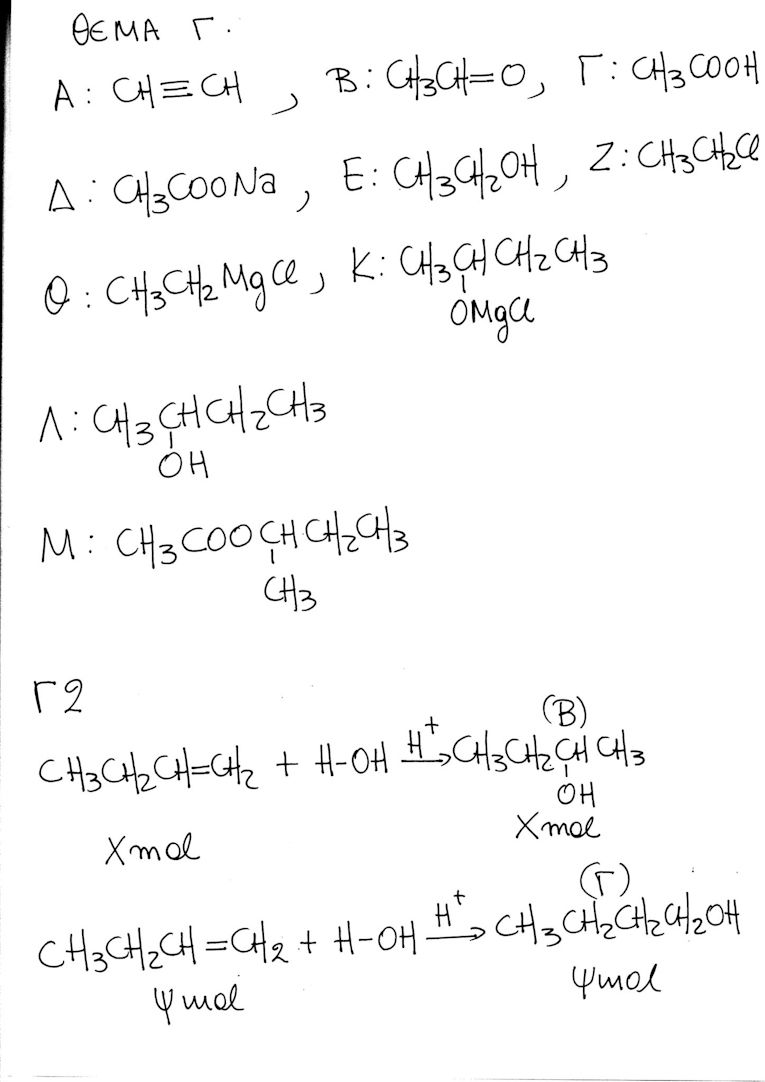 ΘΕΜΑ Γ.
A: CH≡CH , B: CH3CH=O, Γ: CH3COOH
Δ: CH3COONa , E: CH3CH2OH , Z: CH3CH2Cl
Θ: CH3CH2MgCl, K: CH3CHCH2CH3
OMgCl
Λ: CH3CHCH2CH3
OH
M: CH3COOCHCH2CH3
CH3
Γ2
(B)
CH3CH2CH=CH2 + H-OH H+→ CH3CH2CHCH3
OH
Xmol Xmol
(Γ)
CH3CH2CH=CH2 + H-OH H+→ CH3CH2CH2CH2OH
ψmol ψmol